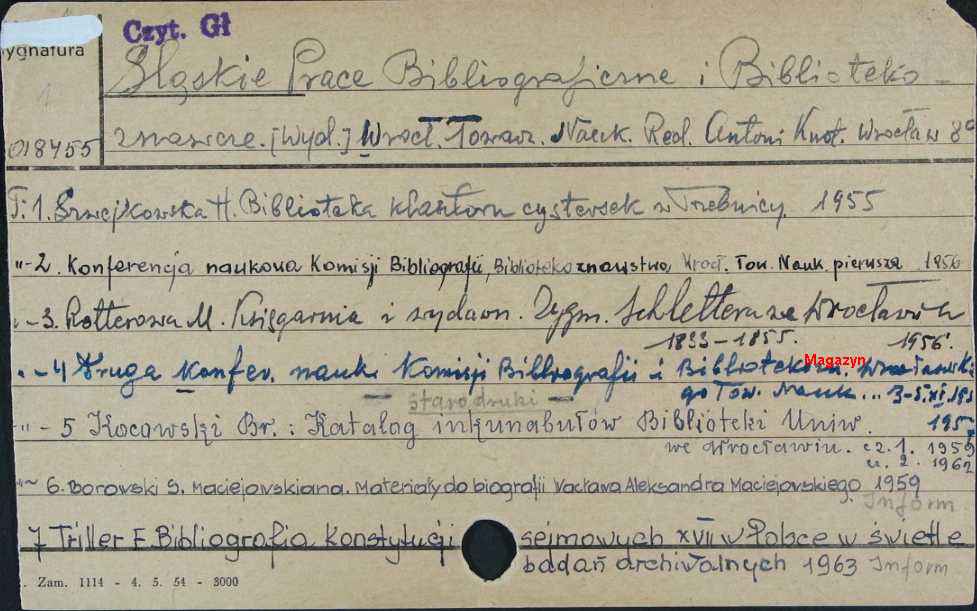 Czyt. Gł
sygnatura
018455
Śląskie Prace Bibliograficzne i Biblioteko-
znawcze. [Wyd.] Wrocł. Towarz. Nauk. Red. Antoni Knot. Wrocław 8°
T. 1. Szwejkowska H. Biblioteka klasztoru cystersek w Trzebnicy. 1955
"-2. Konferencja naukowa Komisji Bibliografii, Bibliotekoznawstwa Wrocł. Tow. Nauk. pierwsza 1956
"-3. Rotterowa M. Księgarnia i wydawn. Zygm. Schlettera we Wrocławiu
1833-1855. 1956.
"-4 Druga konfer. nauk. Komisji Bibliografii i Bibliotekozn. Wrocławskie
Magazyn
go Tow. Nauk... 3-5.XI.195
— starodruki — 1957
"-5 Kocowski Br.: Katalog inkunabułów Biblioteki Uniw.
we Wrocławiu. cz. 1. 1959
cz. 2. 1962
"~ 6. Borowski S. Maciejovskiana. Materiały do biografii Wacława Aleksandra Maciejowskiego 1959
Inform
7 Triller E. Bibliografia Konstytucji sejmowych XVII w Polsce w świetle
badań archiwalnych 1963 Inform
Zam. 1114 - 4. 5. 54 - 3000